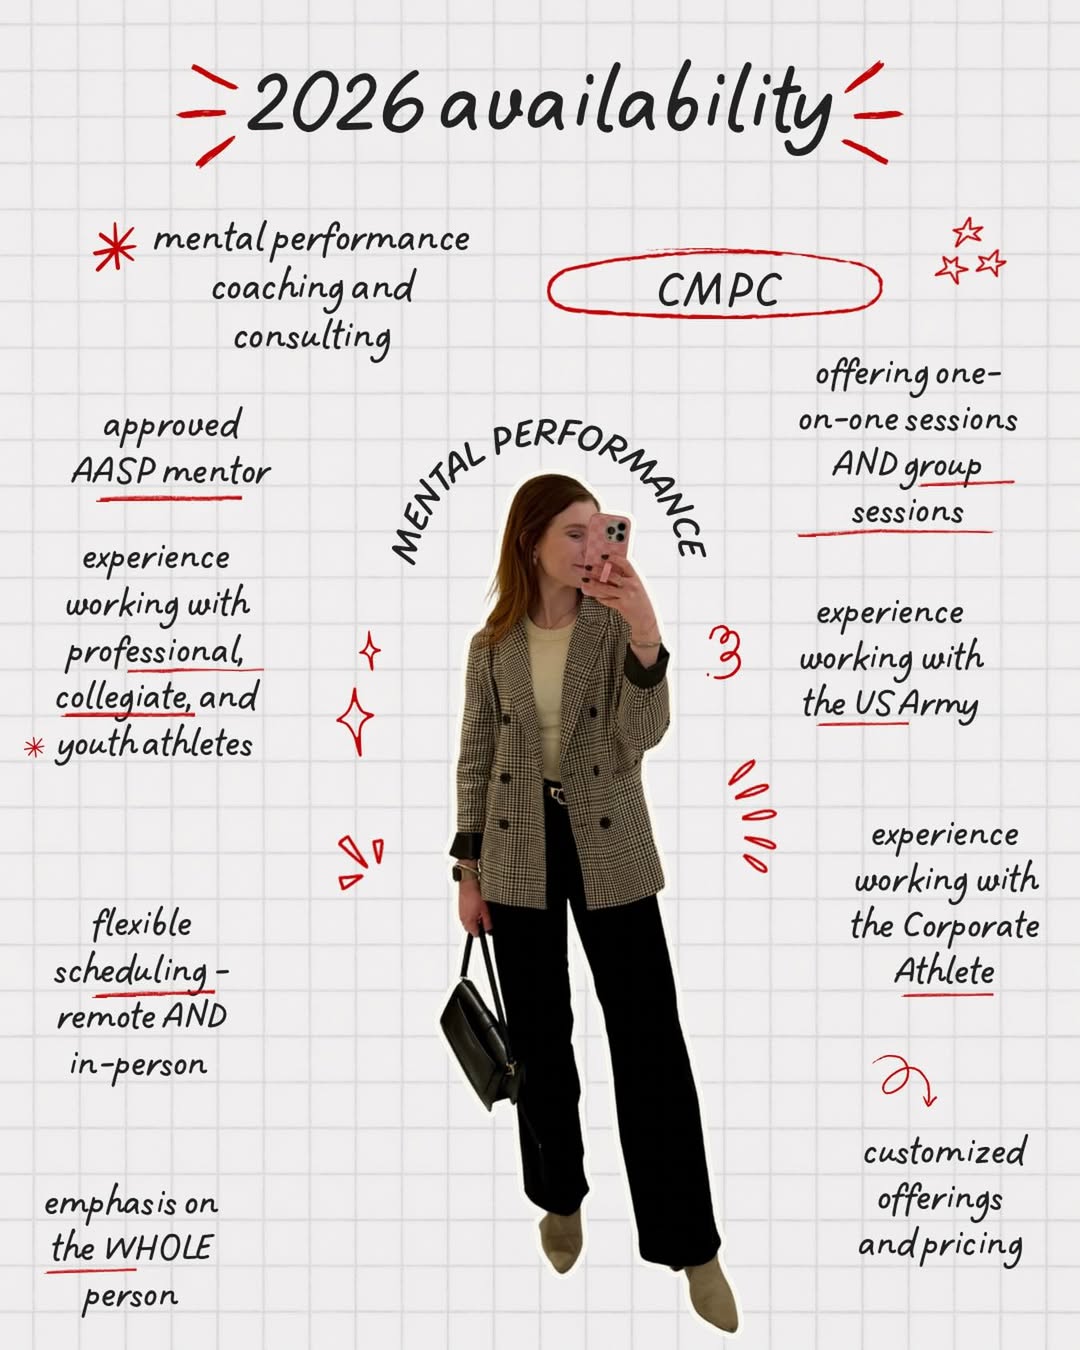 2026 availability
mental performance
coaching and
consulting
CMPC
approved
AASP mentor
offering one-
on-one sessions
AND group
sessions
MENTAL PERFORMANCE
experience
working with
professional,
collegiate, and
youth athletes
experience
working with
the US Army
experience
working with
the Corporate
Athlete
flexible
scheduling -
remote AND
in-person
customized
offerings
and pricing
emphasis on
the WHOLE
person